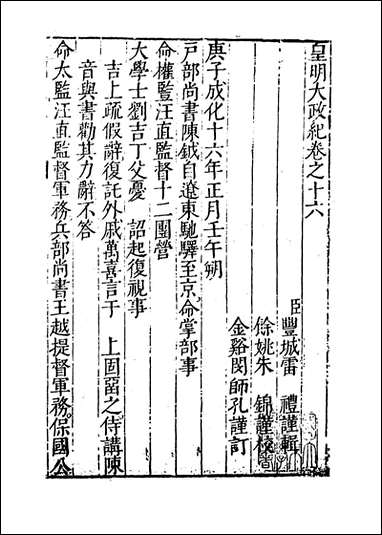 皇明大政紀卷之十六
臣豐城雷 禮謹輯
餘姚朱 錦謹校
金谿閔師孔謹訂
庚子成化十六年正月壬午朔
戸部尚書陳鉞自遼東馳驛至京命掌部事
命權監汪直監督十二團營
大學士劉吉丁父憂 詔起復視事
吉上疏假辭復託外戚萬喜言于 上固留之侍講陳
音與書勸其力辭不答
命太監汪直監督軍務兵部尚書王越提督軍務保國公